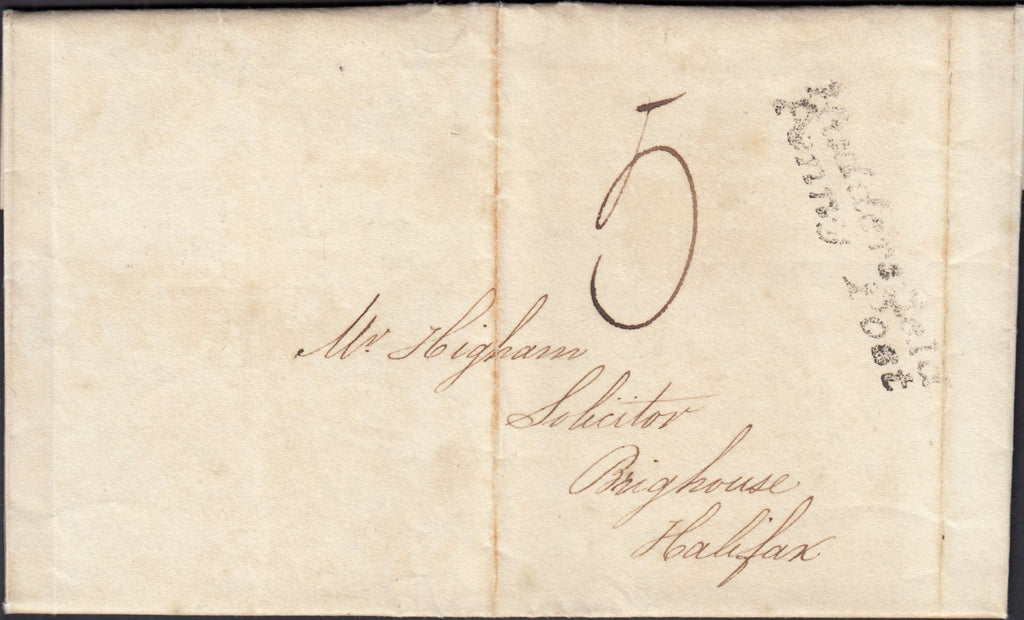 5
Huddersfield
Penny Post
Mr. Higham
Solicitor
Brighouse
Halifax